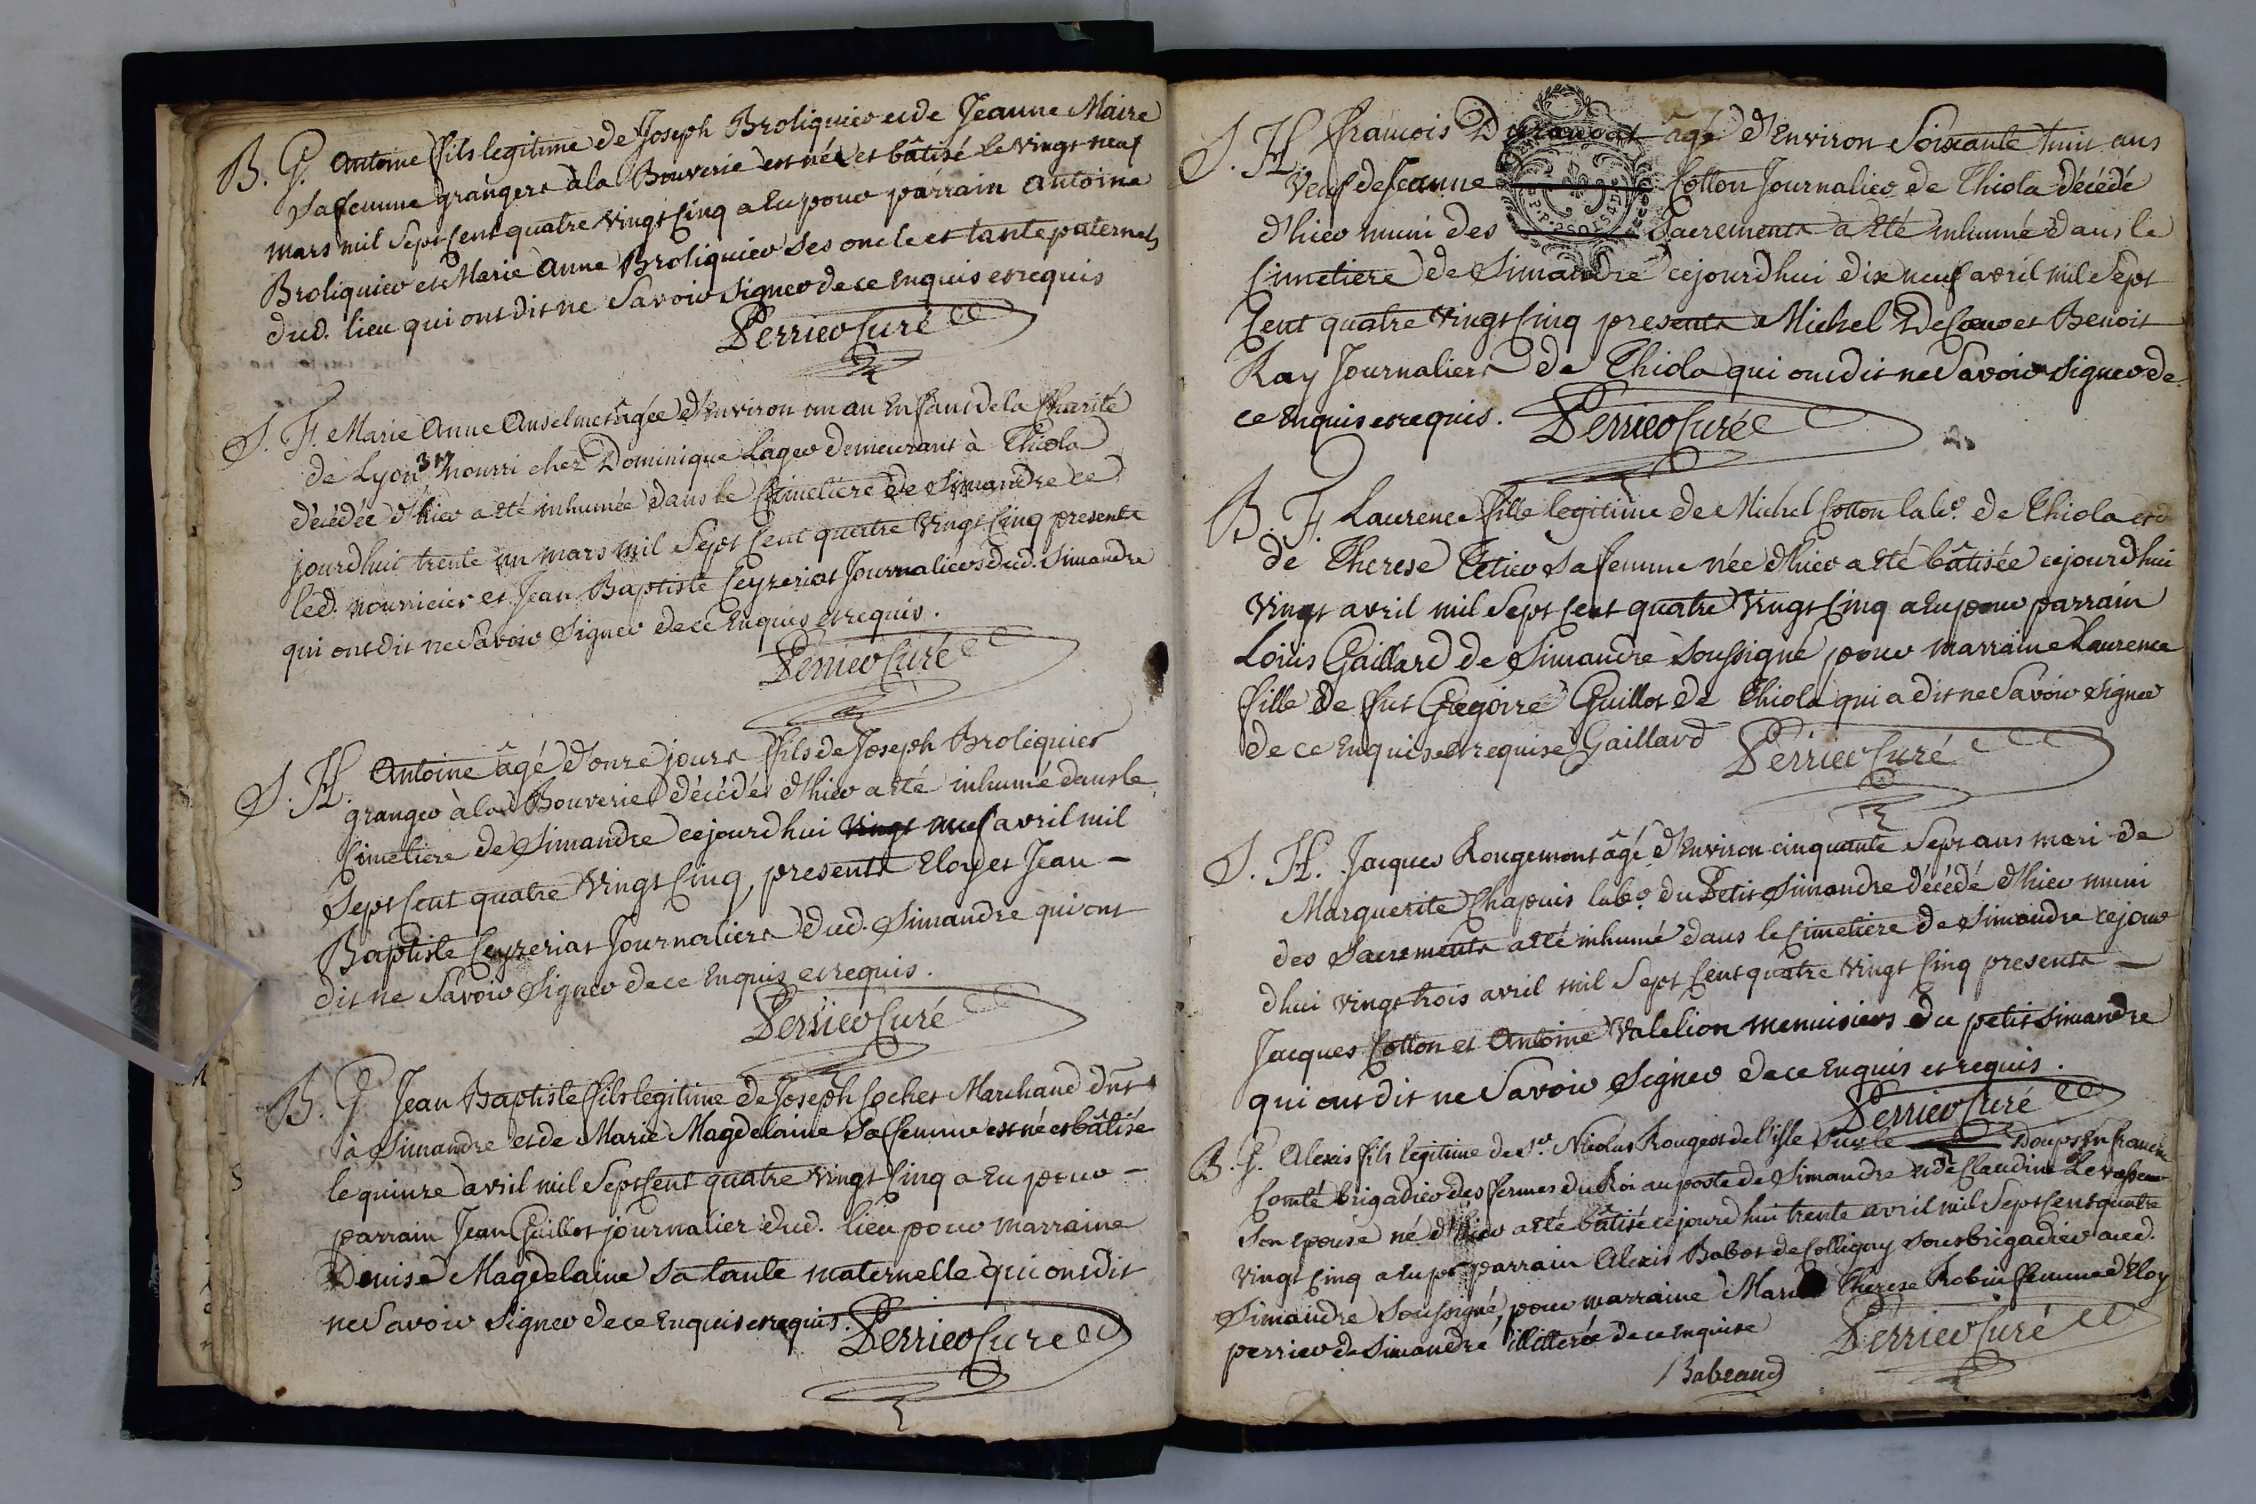 B. G. Antoine fils legitime de Joseph Broliquier et de Jeanne Maire
sa femme grangers à la Bouverie est né et bâtisé le vingt neuf
mars mil sept cent quatre vingt cinq a eu pour parrain Antoine
Broliquier et Marie Anne Broliquier ses oncle et tante paternels
dud. lieu qui ont dit ne savoir signer de ce enquis et requis
Perrier Curé
S. F. Marie Anne Anselme âgée d'environ un an enfant de la Charité
de Lyon 317 nourri chez Dominique Lager demeurant à Thiola
décédée d'hier a été inhumée dans le cimetiere de Simandre ce
jourdhui trente un mars mil sept cent quatre vingt cinq presents
led. nourricier et Jean Baptiste Ceyzeriat journaliers dud. Simandre
qui ont dit ne savoir signer de ce enquis et requis.
Perrier Curé
S. H. Antoine âgé d'onze jours fils de Joseph Broliquier
granger à la Bouverie décédé d'hier a été inhumé dans le
cimetiere de Simandre cejourdhui vingt neuf avril mil
sept cent quatre vingt cinq, presents Eloy et Jean -
Baptiste Ceyzeriat journaliers dud. Simandre qui ont
dit ne savoir signer de ce enquis et requis.
Perrier Curé
B. G. Jean Baptiste fils legitime de Joseph Cochet Marchand
à Simandre et de Marie Magdelaine sa femme est né et bâtisé
le quinze avril mil sept cent quatre vingt cinq a eu pour -
parrain Jean Guillot journalier dud. lieu pour marraine
Denise Magdelaine sa tante maternelle qui ont dit
ne savoir signer de ce enquis et requis.
Perrier Curé
S. H. francois âgé d'environ soixante huit ans
veuf de Jeanne Cotton journalier de Thiola décédé
d'hier muni des Sacrements a été inhumé dans le
cimetiere de Simandre cejourdhui dix neuf avril mil sept
cent quatre vingt cinq presents Michel et Benoit
Ray journaliers de Thiola qui ont dit ne savoir signer de
ce enquis et requis. Perrier Curé
B. F. Laurence fille legitime de Michel Cotton labr. de Thiola et
de Therese Tetier sa femme née d'hier a été bâtisée cejourdhui
vingt avril mil sept cent quatre vingt cinq a eu pour parrain
Loüis Gaillard de Simandre soussigné, pour marraine Laurence
fille de fut Gregoire Guillot de Thiola qui a dit ne savoir signer
de ce enquise et requise Gaillard Perrier Curé
S. H. Jacques Rougemont âgé d'environ cinquante sept ans mari de
Marguerite Chapuis labr. du Petit Simandre décédé d'hier muni
des Sacrements a été inhumé dans le cimetiere de Simandre cejour
dhui vingt trois avril mil sept cent quatre vingt cinq presents -
Jacques Cotton et Antoine Valelion menuisiers du petit Simandre
qui ont dit ne savoir signer de ce enquis et requis.
Perrier Curé
B. G. Alexis fils legitime de Sr. Nicolas Rougeot de l'isle sur le Doups en franche
Comté brigadier des fermes du Roi au poste de Simandre et de Claudine Levasseur
son epouse né d'hier a été bâtisé cejourdhui trente avril mil sept cent quatre
vingt cinq a eu pr parrain Alexis Babot de Colligny sousbrigadier aud.
Simandre soussigné, pour marraine Marie Therese Robin femme d'Eloy
perrier de Simandre illitterée de ce enquise
Perrier Curé